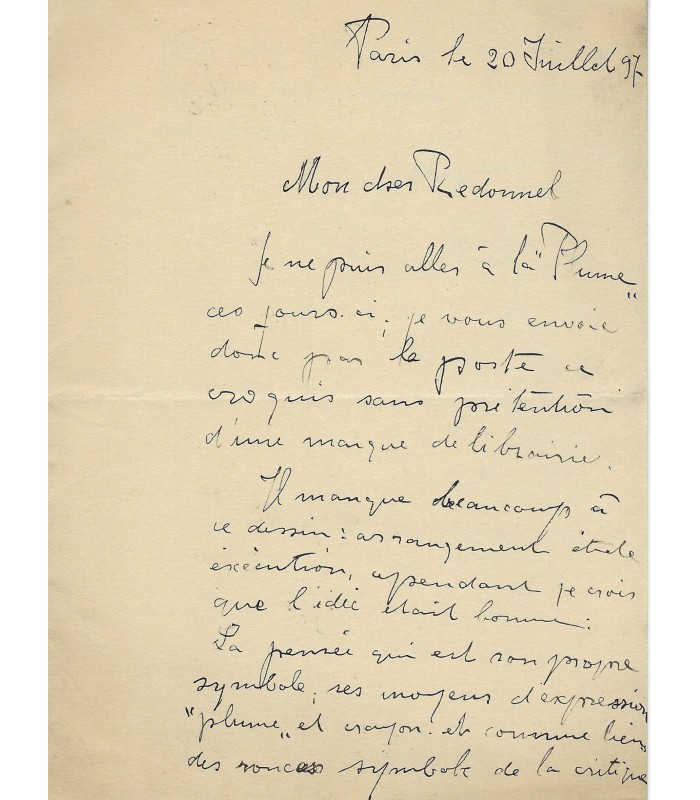 Paris le 20 Juillet 97
Mon cher Redonnel
Je ne puis aller à la "Plume"
ces jours-ci; je vous envoie
donc par la poste ce
croquis sans prétention
d'une marque de librairie.
Il manque beaucoup à
ce dessin: arrangement étude
exécution, cependant je crois
que l'idée était bonne:
La pensée qui est son propre
symbole; ses moyens d'expression
"plume" et crayon. et comme lien
des ronces symbole de la critique